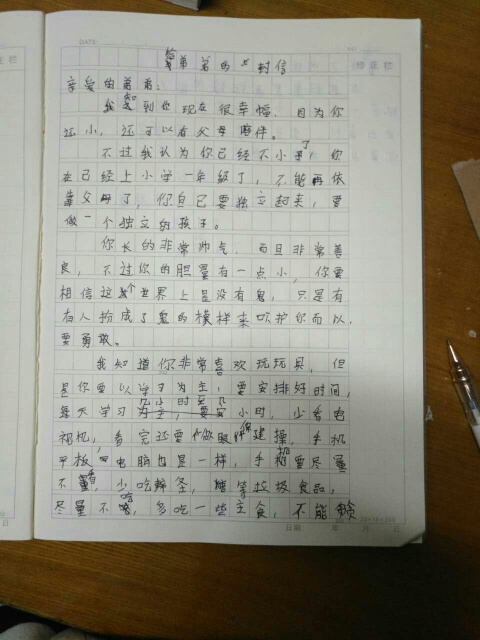 给弟弟的一封信
亲爱的弟弟:
我知到你现在很幸福,因为你
还小,还可以有父母陪伴。
不过我认为你已经不小了,你
在已经上小学一年级了,不能再依
靠父母了,你自已要独立起来,要
做一个独立的孩子。
你长的非常帅气,而且非常善
良,不过你的胆量有一点小,你要
相信这个世界上是没有鬼,只是有
在人扮成了鬼的模样来吓你而以,
要勇敢。
我知道你非常喜欢玩玩具,但
是你要以学习为主,要安排好时间,
每天学习几小时,少看电
视机,看完还要做眼保建操,手机
平板电脑也是一样,手机要尽量
不看,少吃辣条,等垃圾食品,
尽量不吃,多吃一些主食,不能贪
日期 年 月 日